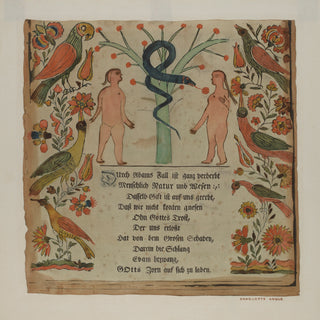 Durch Adams Fall ist ganz verderbt
Menschlich Natur und Wesen :,:
Dasselb Gift ist auf uns geerbt,
Daß wir nicht konten gnesen
Ohn Gottes Trost,
Der uns erlößt
Hat von dem Grosen Schaden,
Darein die Schlang
Evam bezwang,
GOtts Zorn auf sich zu laden.
CHARLOTTE ANGUS